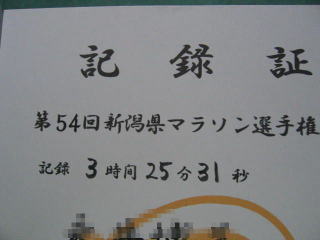 記録証
第54回新潟県マラソン選手権
記録 3時間25分31秒